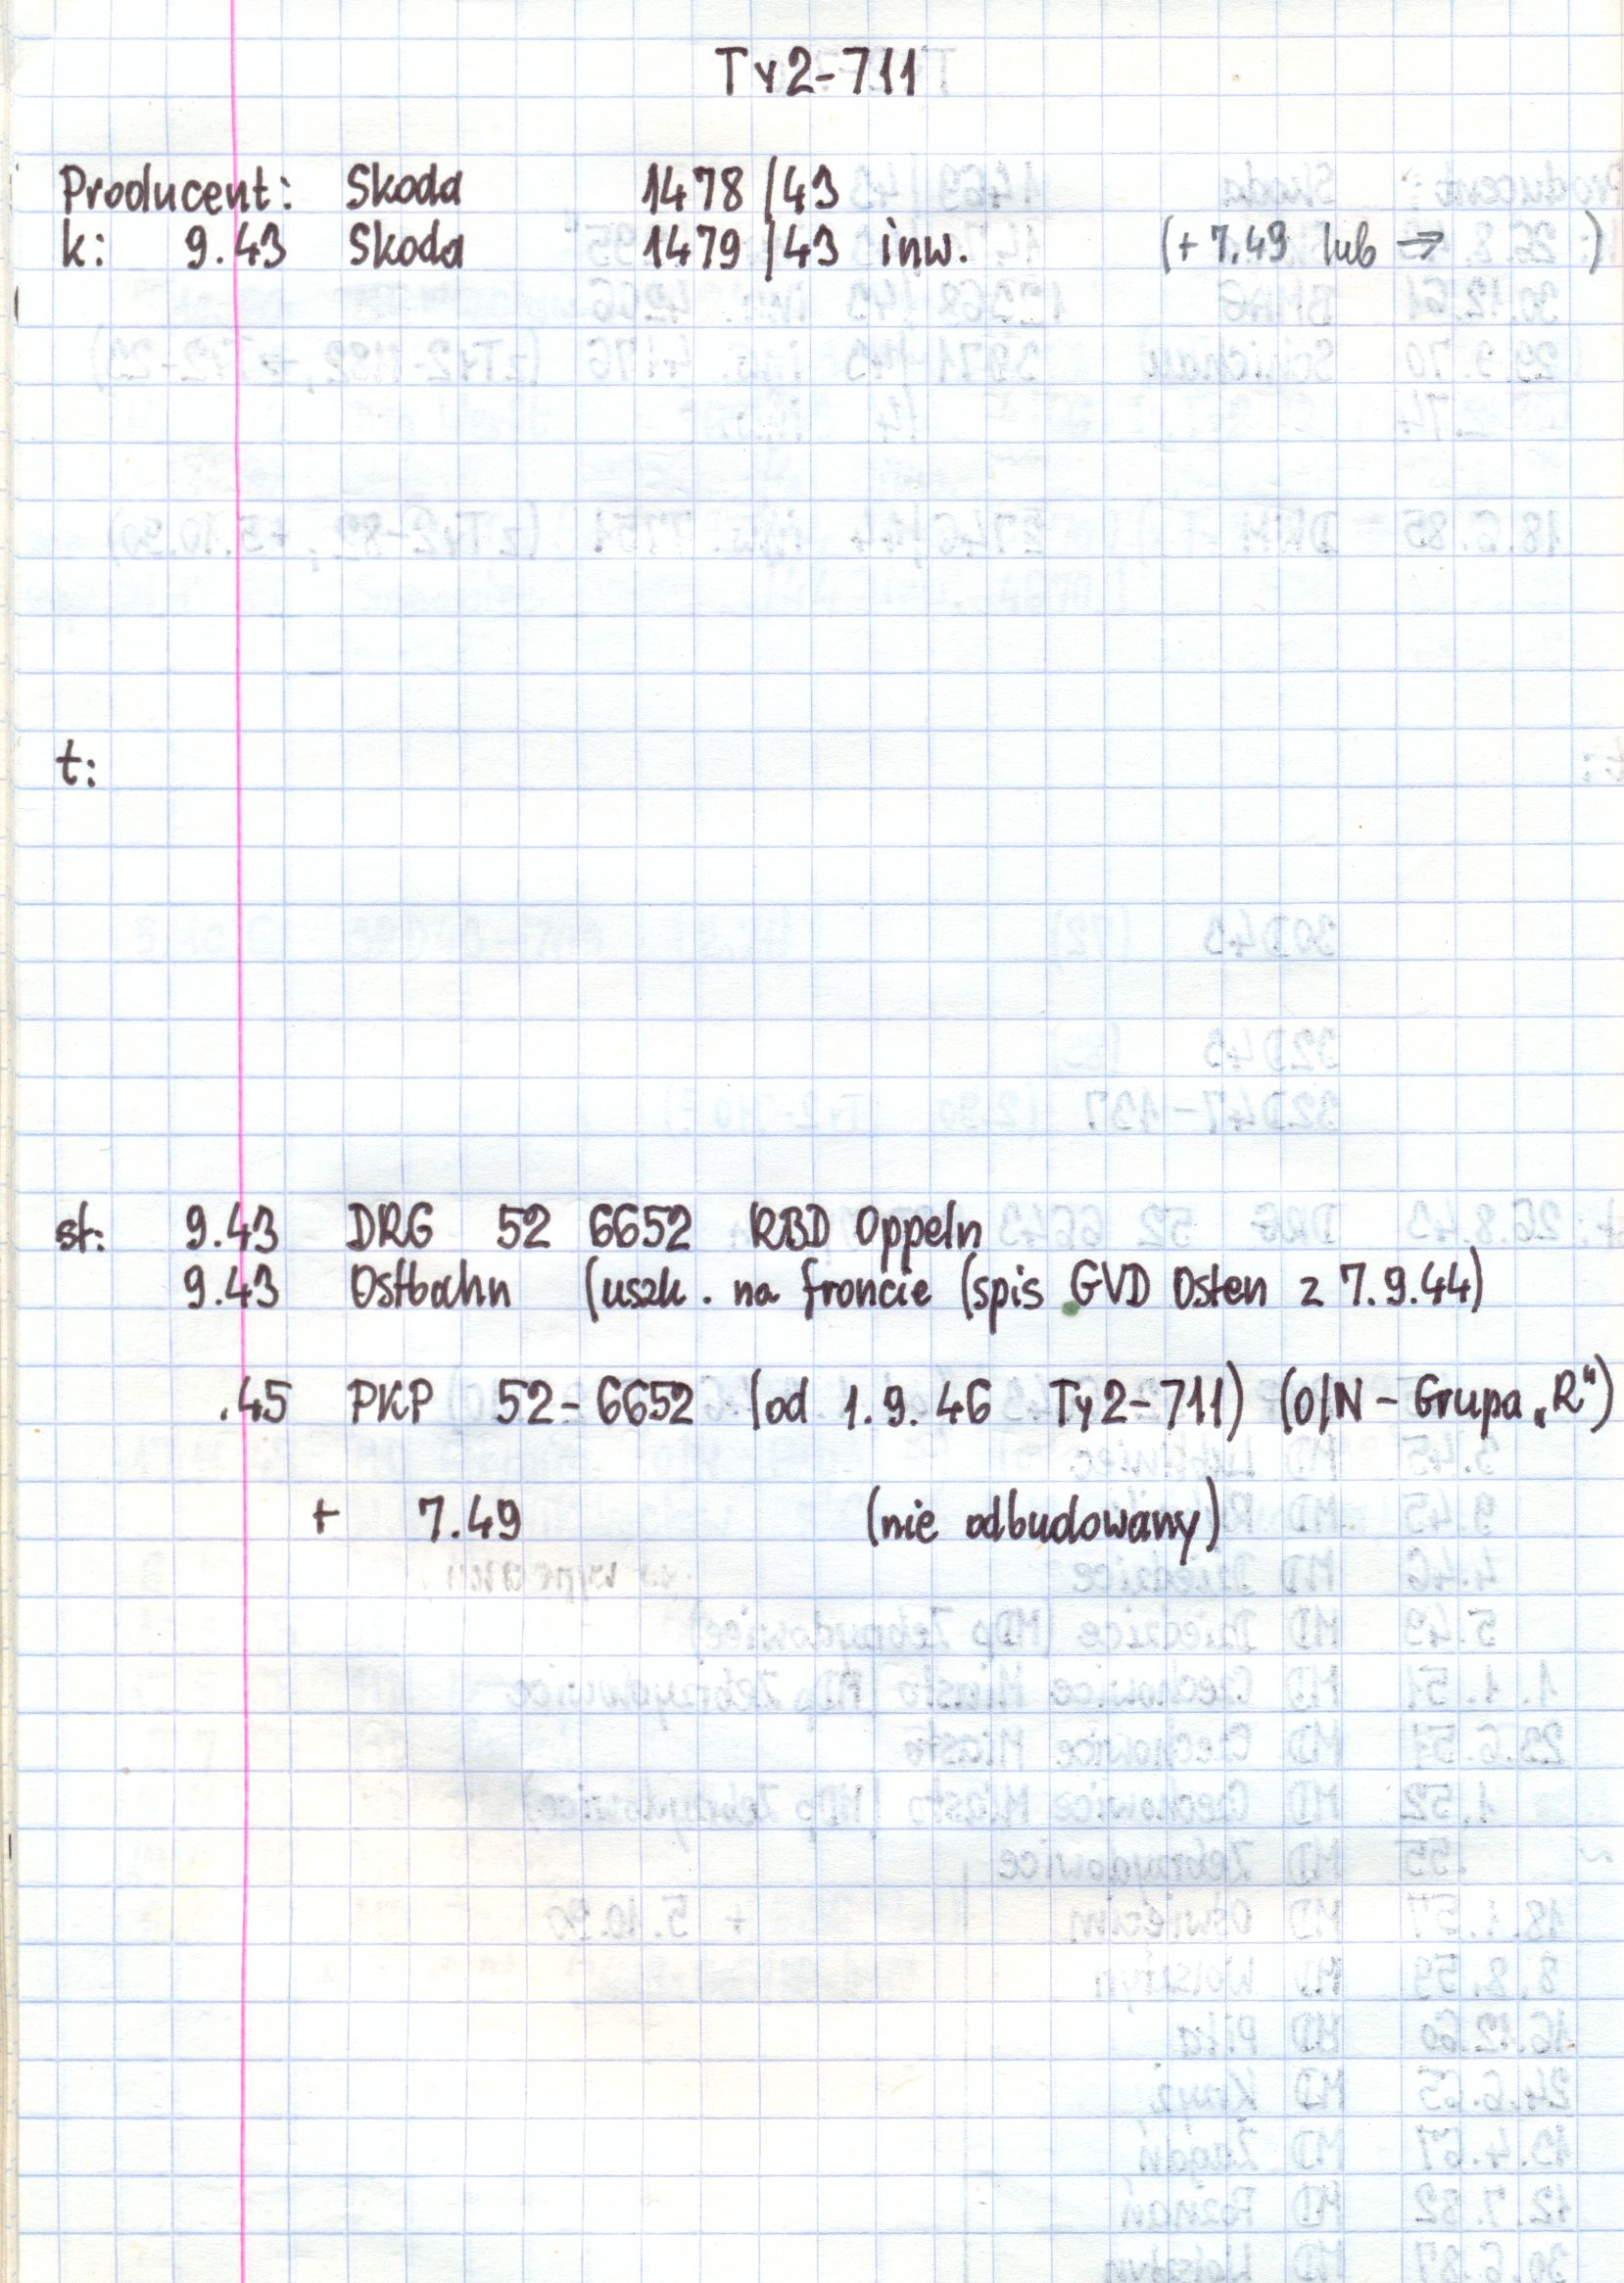 Ty2-711
Producent: Skoda 1478/43
k: 9.43 Skoda 1479/43 inw. (+ 7.49 lub → )
t:
st: 9.43 DRG 52 6652 RBD Oppeln
9.43 Ostbahn (uszk. na froncie (spis GVD Osten z 7.9.44)
.45 PKP 52-6652 (od 1.9.46 Ty2-711) (O/N - Grupa „R")
+ 7.49 (nie odbudowany)